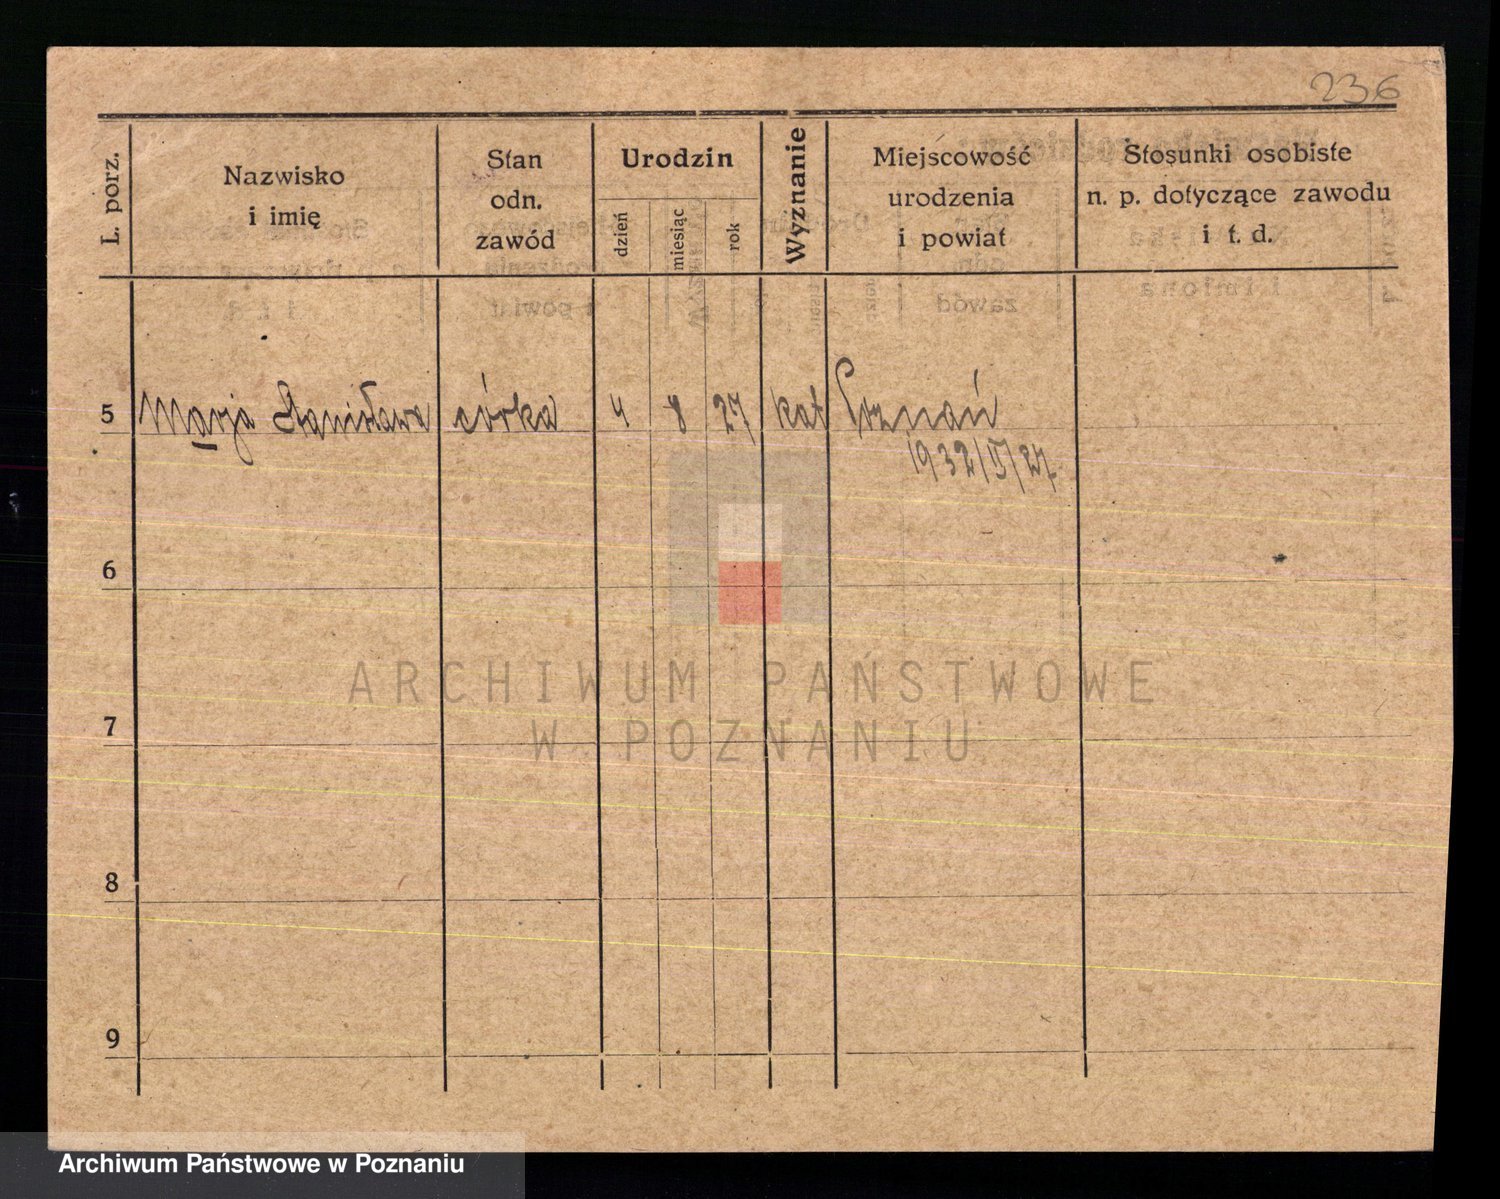 236
L. porz.
Nazwisko
i imię
Stan
odn.
zawód
Urodzin
dzień
miesiąc
rok
Wyznanie
Miejscowość
urodzenia
i powiat
Stosunki osobiste
n. p. dotyczące zawodu
i t. d.
5 Marja Stanisława córka 4 8 27 kat Poznań
1932/5/27
6
7
8
9
ARCHIWUM PAŃSTWOWE
W POZNANIU
Archiwum Państwowe w Poznaniu